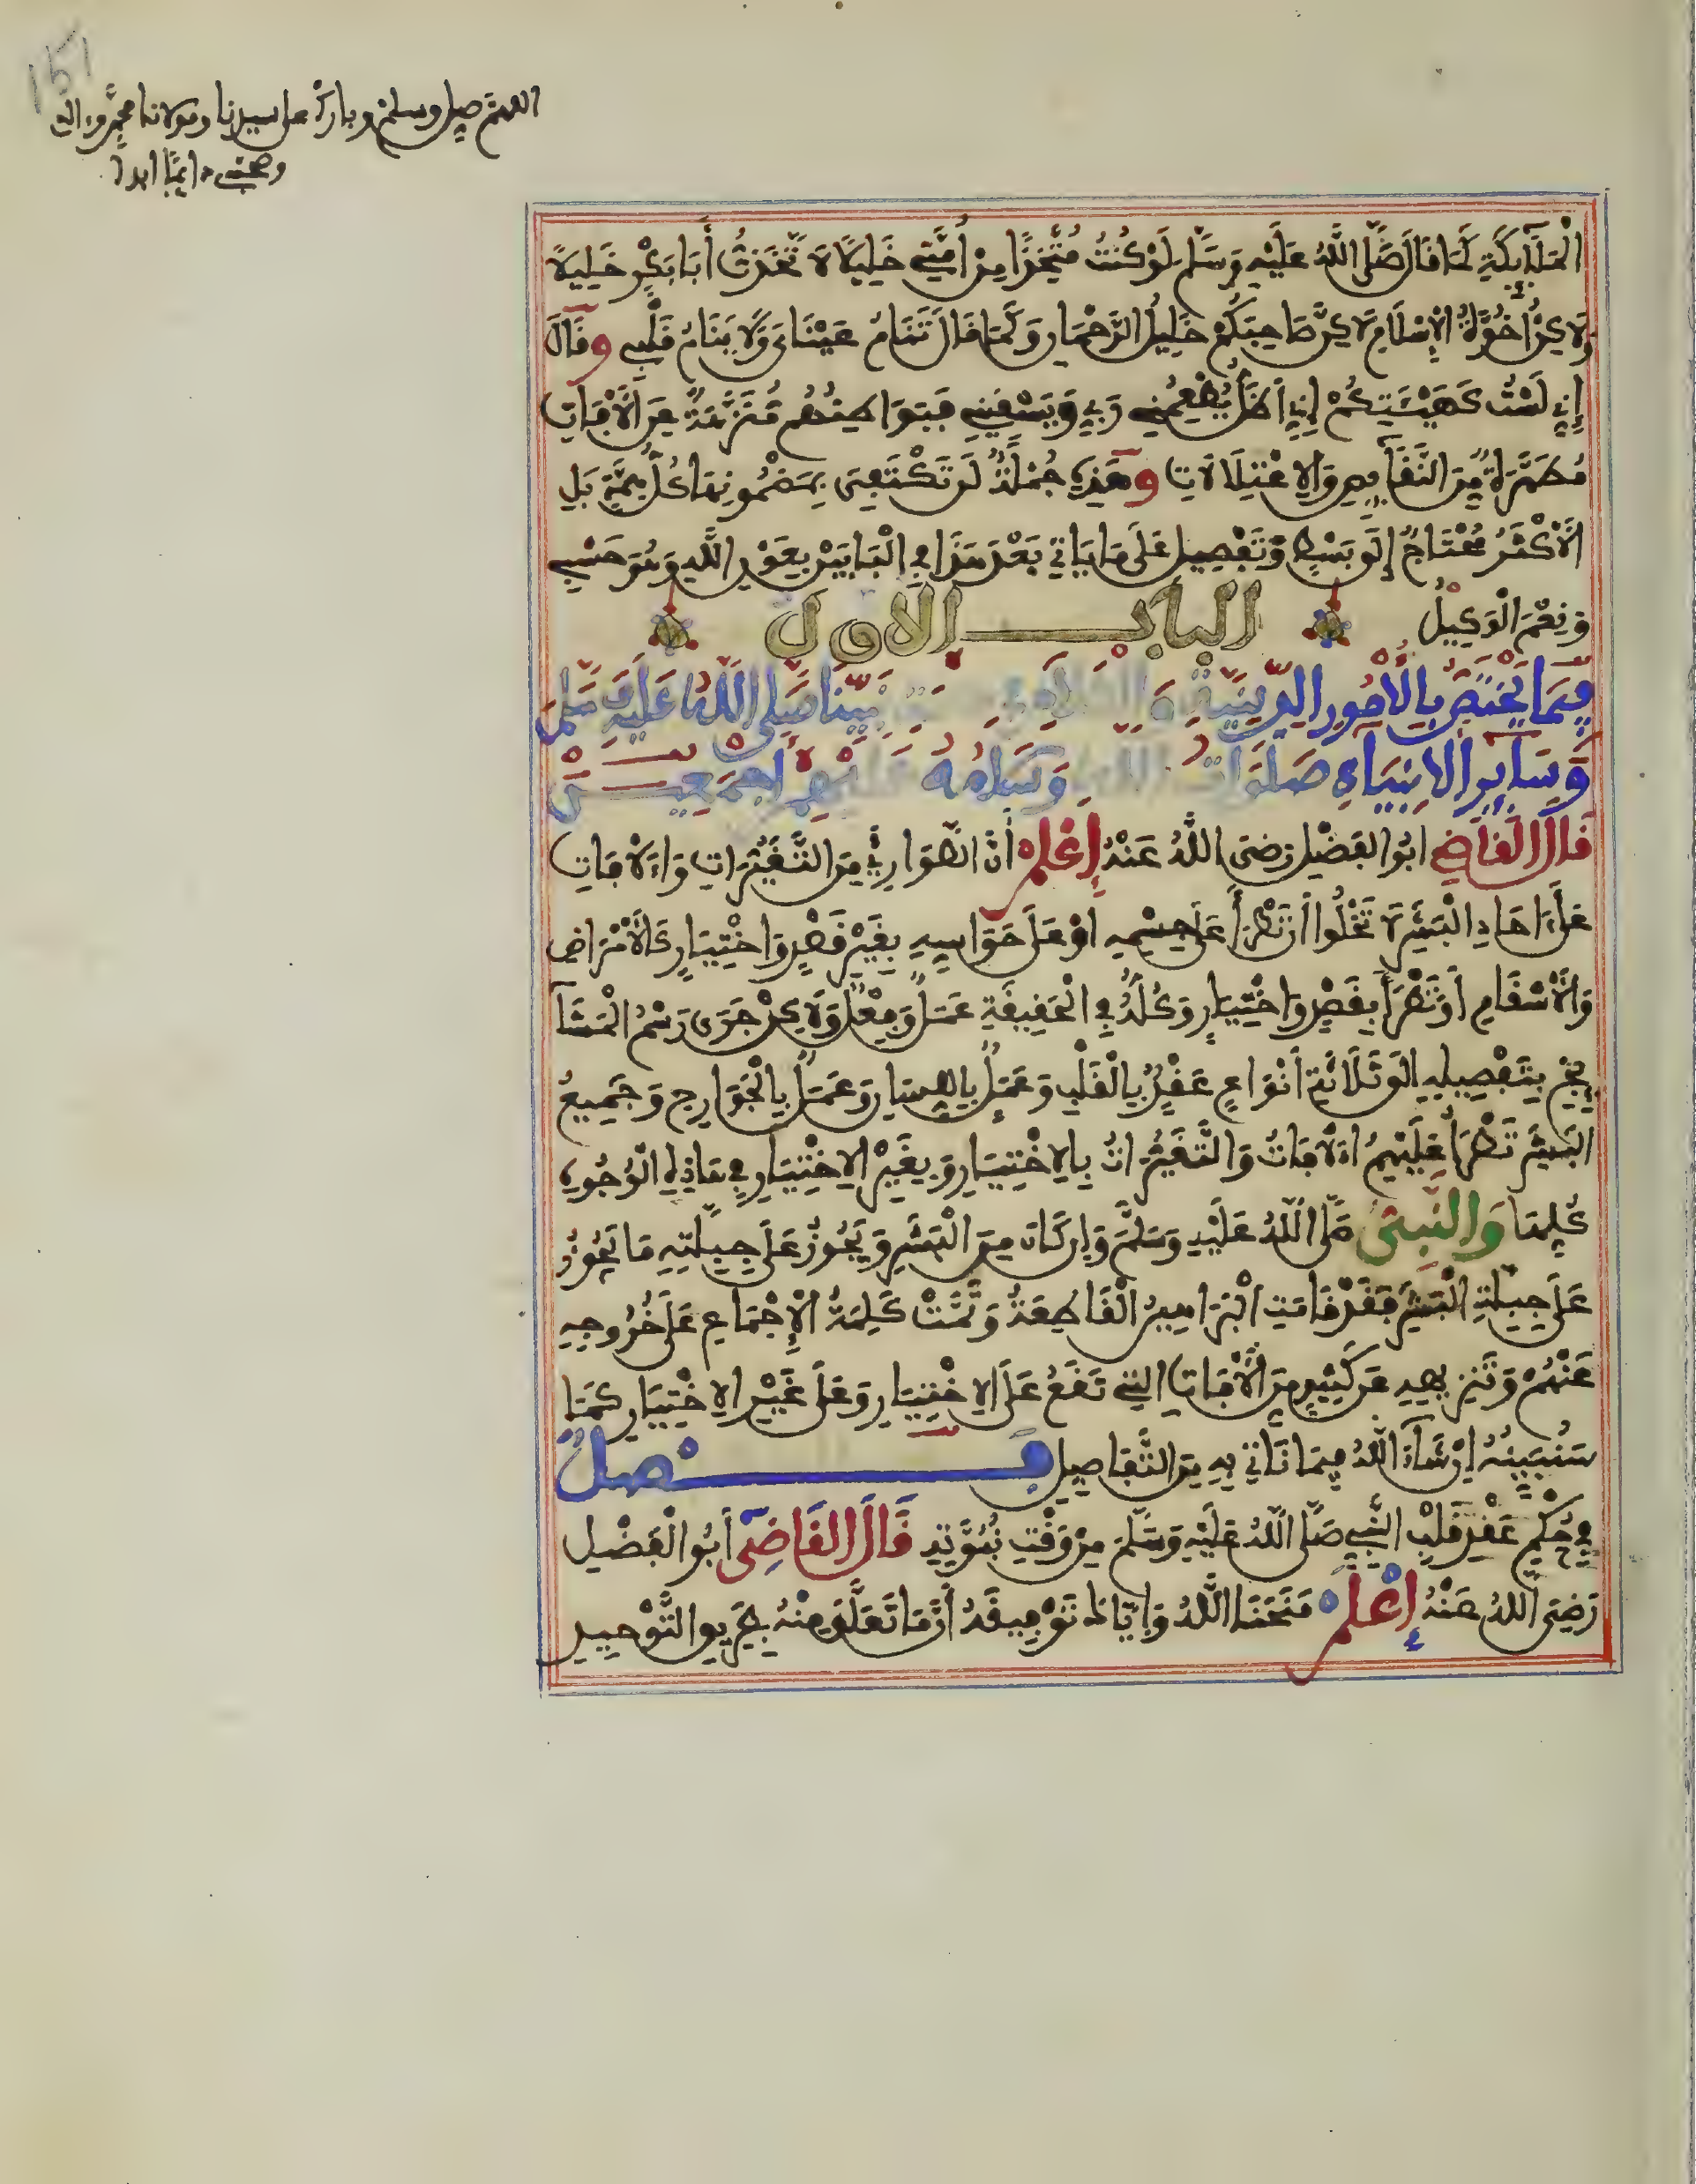 اللهم صل وسلم وبارك على سيدنا ومولانا محمد وءاله
وصحبه دايما ابدا
الْمَلَآئِكَةِ كَمَا قَالَ صَلَّى اللَّهُ عَلَيْهِ وَسَلَّمَ لَوْ كُنْتُ مُتَّخِذًا مِنْ أُمَّتِي خَلِيلًا لَاتَّخَذْتُ أَبَا بَكْرٍ خَلِيلًا
وَلَاكِنْ أُخُوَّةُ الْإِسْلَامِ لَاكِنَّ صَاحِبَكُمْ خَلِيلُ الرَّحْمَانِ وَكَمَا قَالَ تَنَامُ عَيْنَايَ وَلَا يَنَامُ قَلْبِي وَقَالَ
إِنِّي لَسْتُ كَهَيْئَتِكُمْ إِنِّي أَظَلُّ يُطْعِمُنِي رَبِّي وَيَسْقِينِي فَبَوَاطِنُهُم مُنَزَّهَةٌ عَنِ الْآفَاتِ
مُطَهَّرَةٌ مِنَ النَّقَآئِصِ وَالِاعْتِلَالَاتِ وَهَذِهِ جُمْلَةٌ لَنْ تَكْتَفِيَ بِمَضْمُونِهَا كُلُّ هِمَّةٍ بَلِ
الْأَكْثَرُ مُحْتَاجٌ إِلَى بَسْطٍ وَتَفْصِيلٍ عَلَى مَا يَاتِي بَعْدَ هَذَا فِي الْبَابَيْنِ بِعَوْنِ اللَّهِ وَهُوَ حَسْبِي
وَنِعْمَ الْوَكِيلُ الباب الأول
فِيمَا يَخْتَصُّ بِالْأُمُورِ الدِّينِيَّةِ وَالْكَلَامِ فِي نَبِيِّنَا صَلَّى اللَّهُ عَلَيْهِ وَسَلَّمَ
وَسَآئِرِ الْانْبِيَاءِ صَلَوَاتُ اللَّهِ وَسَلَامُهُ عَلَيْهِمْ أَجْمَعِينَ
قَالَ الْقَاضِي ابُو الْفَضْلِ رَضِيَ اللَّهُ عَنْهُ إِعْلَمْ أَنَّ الطَّوَارِئَ مِنَ التَّغَيُّرَاتِ وَالْآفَاتِ
عَلَى ءَاحَادِ الْبَشَرِ لَا تَخْلُوا أَنْ تَطْرَأَ عَلَى جِسْمِهِ اوْ عَلَى حَوَاسِهِ بِغَيْرِ قَصْدٍ وَاخْتِيَارٍ كَالْأَمْرَاضِ
وَالْأَسْقَامِ أَوْ تَطْرَأَ بِقَصْدٍ وَاخْتِيَارٍ وَكُلُّهُ فِي الْحَقِيقَةِ عَمَلٌ وَفِعْلٌ وَلَاكِنْ جَرَى رَسْمُ الْمَشَآ
يِخِ بِتَفْصِيلِهِ إِلَى ثَلَاثَةِ أَنْوَاعٍ عَقْدٌ بِالْقَلْبِ وَعَمَلٌ بِاللِّسَانِ وَعَمَلٌ بِالْجَوَارِحِ وَجَمِيعُ
الْبَشَرِ تَطْرَأُ عَلَيْهِمُ الْآفَاتُ وَالتَّغَيُّرَاتُ بِالِاخْتِيَارِ وَبِغَيْرِ الِاخْتِيَارِ فِي هَاذِهِ الْوُجُوهِ
كُلِّهَا وَالنَّبِيُّ صَلَّى اللَّهُ عَلَيْهِ وَسَلَّمَ وَإِنْ كَانَ مِنَ الْبَشَرِ وَيَجُوزُ عَلَى جِبِلَّتِهِ مَا يَجُوزُ
عَلَى جِبِلَّةِ الْبَشَرِ فَقَدْ قَامَتِ الْبَرَاهِينُ الْقَاطِعَةُ وَتَمَّتْ كَلِمَةُ الْإِجْمَاعِ عَلَى خُرُوجِهِ
عَنْهُمْ وَتَنْزِيهِهِ عَنْ كَثِيرٍ مِنَ الْآفَاتِ الَّتِي تَقَعُ عَلَى الِاخْتِيَارِ وَعَلَى غَيْرِ الِاخْتِيَارِ كَمَا
سَنُبَيِّنُهُ إِنْ شَآءَ اللَّهُ فِيمَا نَاتِي بِهِ مِنَ التَّفَاصِيلِ فَصْلٌ
فِي حُكْمِ عَقْدِ قَلْبِ النَّبِيِّ صَلَّى اللَّهُ عَلَيْهِ وَسَلَّمَ مِنْ وَقْتِ نُبُوَّتِهِ قَالَ الْقَاضِي أَبُو الْفَضْلِ
رَضِيَ اللَّهُ عَنْهُ إِعْلَمْ مَنَحَنَا اللَّهُ وَإِيَّاكَ تَوْفِيقَهُ أَنَّ مَا تَعَلَّقَ مِنْهُ بِطَرِيقِ التَّوْحِيدِ